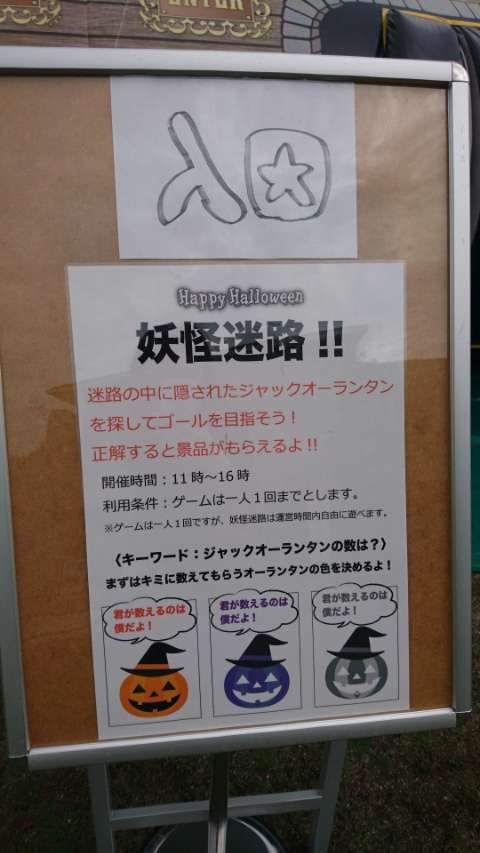 ENTER
入口
Happy Halloween
妖怪迷路!!
迷路の中に隠されたジャックオーランタン
を探してゴールを目指そう！
正解すると景品がもらえるよ!!
開催時間：11時～16時
利用条件：ゲームは一人1回までとします。
※ゲームは一人1回ですが、妖怪迷路は運営時間内自由に遊べます。
〈キーワード：ジャックオーランタンの数は？〉
まずはキミに数えてもらうオーランタンの色を決めるよ！
君が数えるのは
僕だよ！
君が数えるのは
僕だよ！
君が数えるのは
僕だよ！